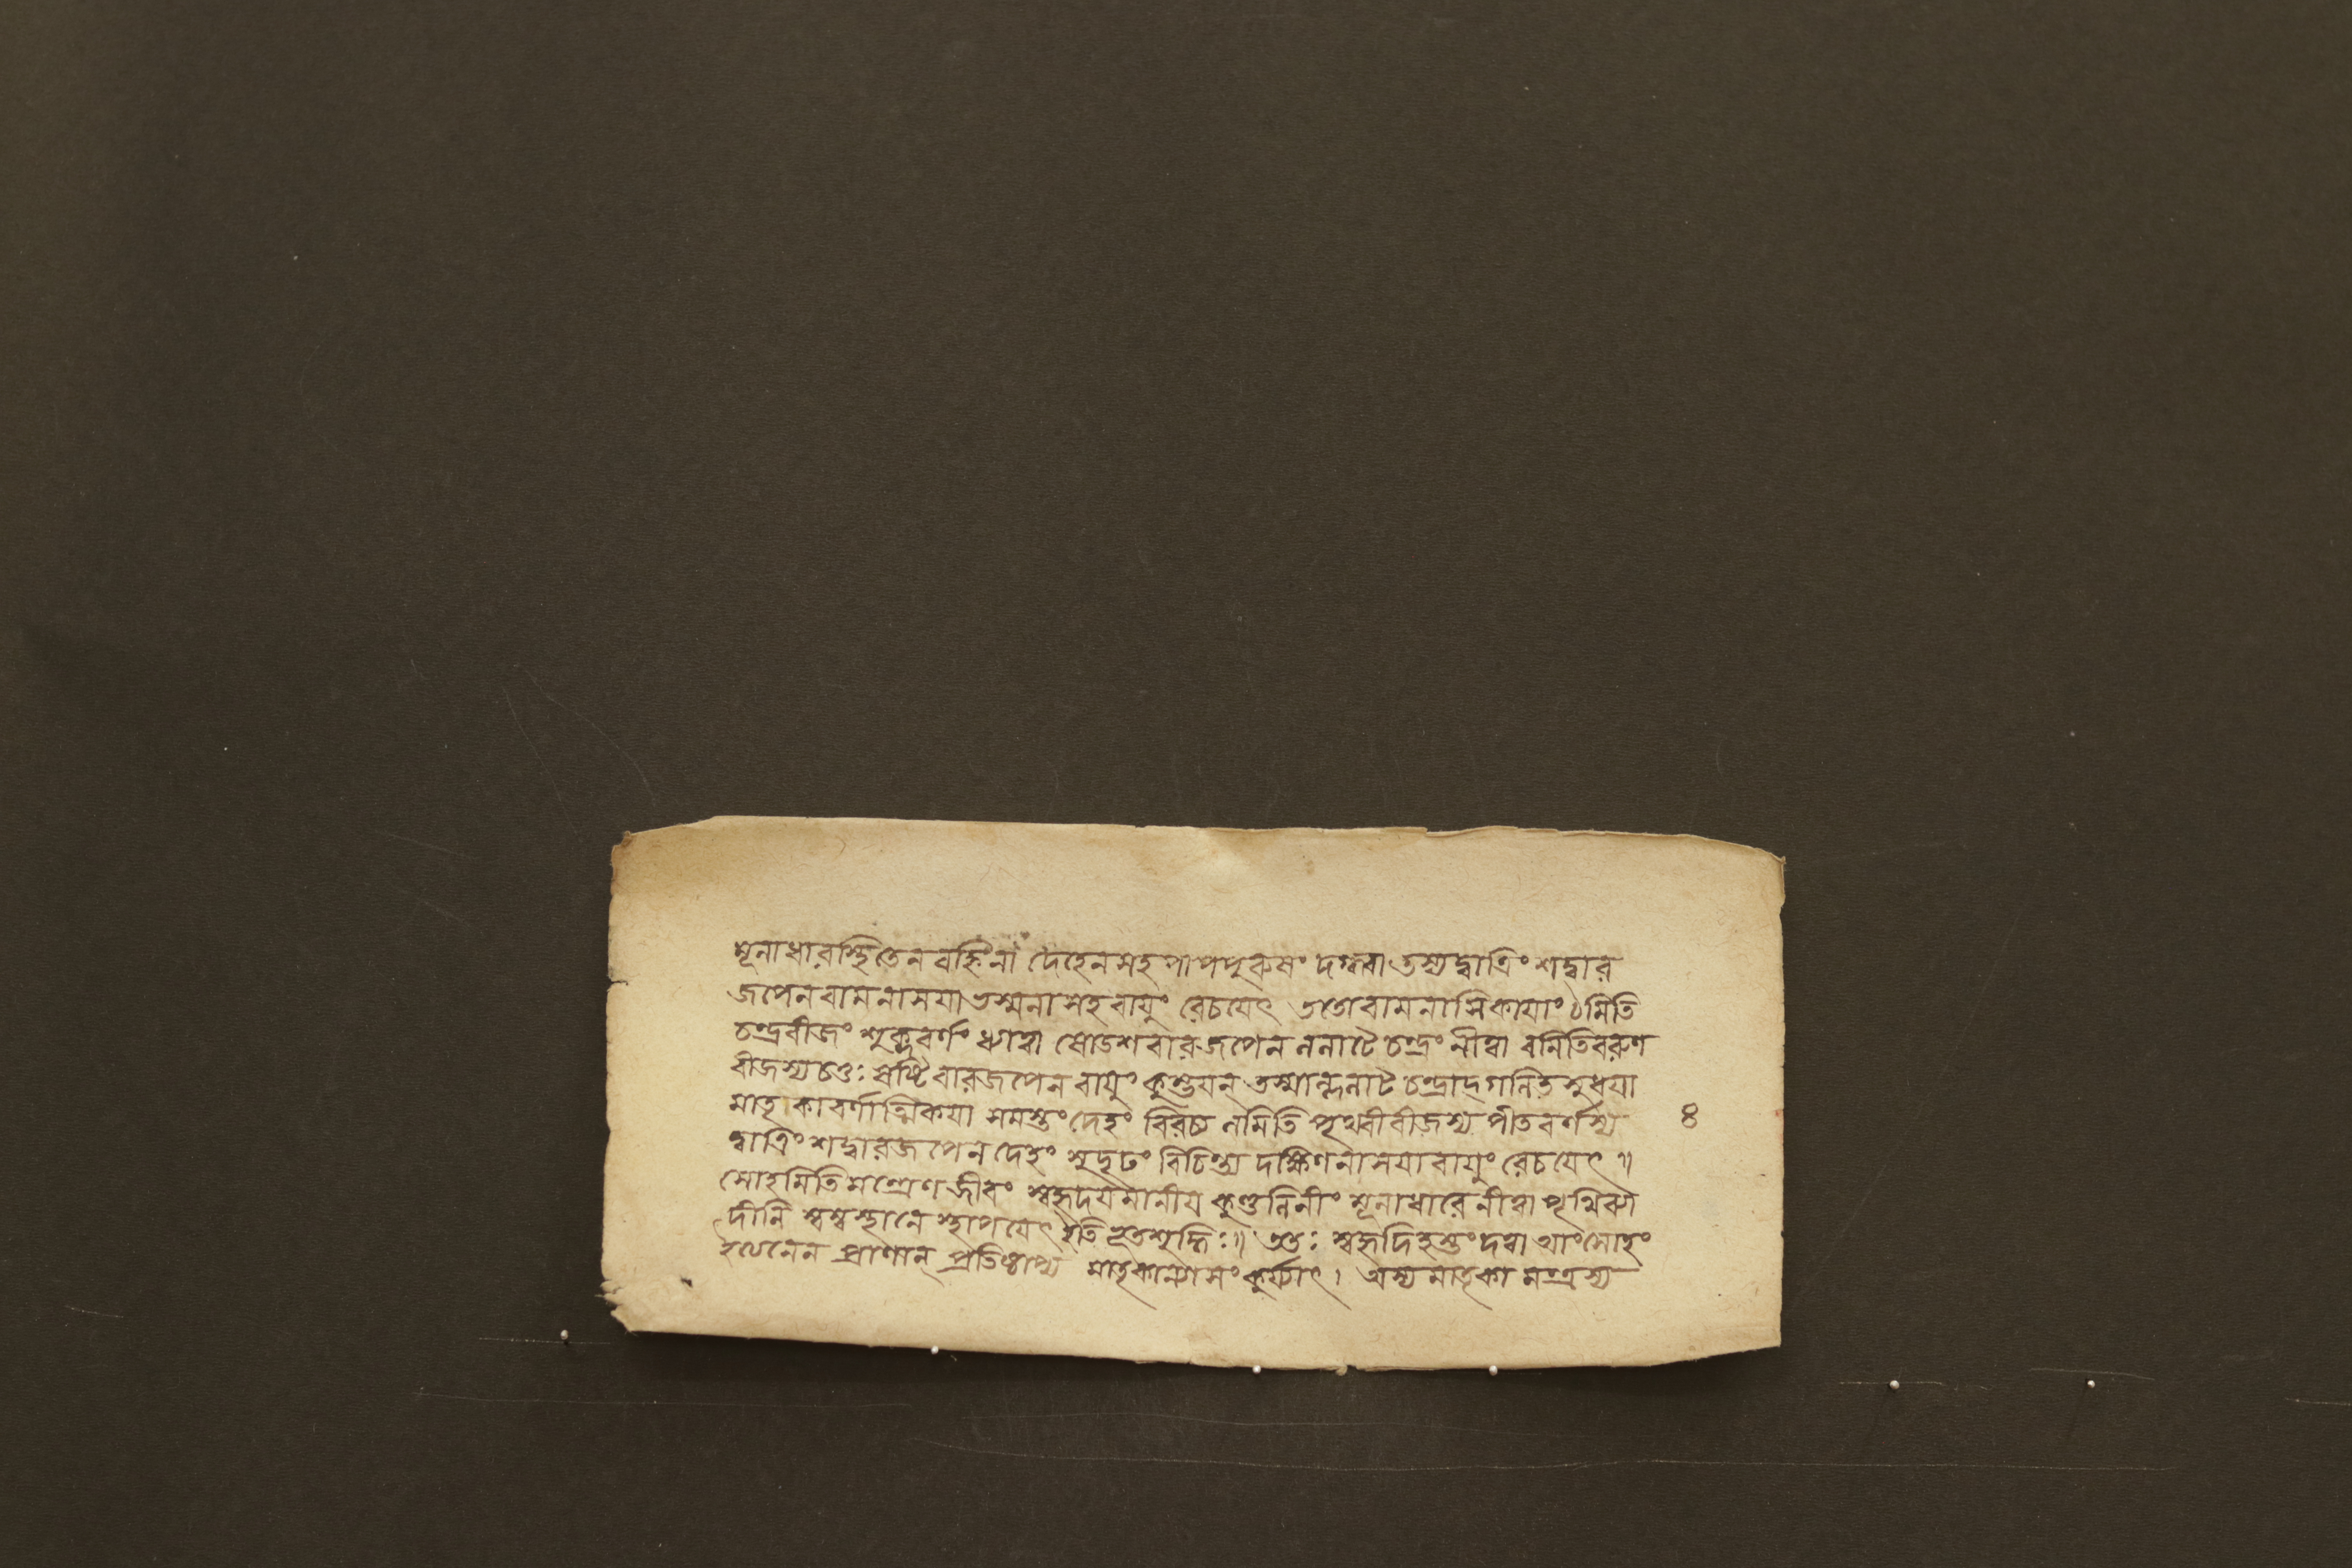 মূলাধারস্থিতেন বহ্নিনা দেহেন সহ পাপপুরুষং দগ্ধ্বা তস্য দ্বাত্রিংশদ্বার
জপেন বামনাসয়া ভস্মনা সহ বায়ুং রেচয়েৎ ততো বামনাসিকায়াং ঠমিতি
চন্দ্রবীজং শুক্লবর্ণং ধ্যাত্বা ষোডশবারজপেন ললাটে চন্দ্রং নীত্বা বমিতি বরুণ
বীজস্য চতুঃষষ্টিবারজপেন বায়ুং কুম্ভয়ন্ তস্মাল্ললাট চন্দ্রাদ্গলিত সুধয়া
মাতৃকাবর্ণাত্মিকয়া সমস্তং দেহং বিরচ্য লমিতি পৃথ্বীবীজস্য পীতবর্ণস্য
৪
দ্বাত্রিংশদ্বারজপেন দেহং সুদৃঢং বিচিন্ত্য দক্ষিণনাসয়া বায়ুং রেচয়েৎ ॥
সোহমিতি মন্ত্রেণ জীবং স্বহৃদয়মানীয় কুণ্ডলিনীং মূলাধারে নীত্বা পৃথিব্যা
দীনি স্বস্বস্থানে স্থাপয়েৎ ইতি ভূতশুদ্ধিঃ ॥ ততঃ স্বহৃদি হস্তং দত্বা আং সোহং
ইত্যনেন প্রাণান্ প্রতিষ্ঠাপ্য মাতৃকান্যাসং কুর্য্যাৎ। অস্য মাতৃকা মন্ত্রস্য